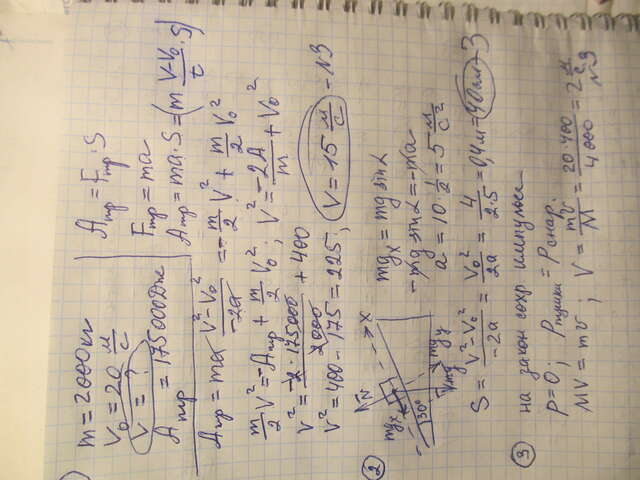 m = 2000 кг
V₀ = 20 м/с
V = ?
Aтр = 175000 Дж
Aтр = Fтр · S
Fтр = ma
Aтр = ma · S = (m (V-V₀)/t · S)
Aтр = ma (V² - V₀²)/(-2a) = -m/2 V² + m/2 V₀²
m/2 V² = -Aтр + m/2 V₀² ; V² = -2A/m + V₀²
V² = (-2 · 175000)/2000 + 400
V² = 400 - 175 = 225 ; V = 15 м/с - N3
2
N
X
mgx
30°
mg
mgy
mgx = mg sin α
-mg sin α = -ma
a = 10 · 1/2 = 5 м/с²
S = (V² - V₀²)/(-2a) = V₀²/2a = 4/(2·5) = 0,4 м = 40 см - 3
3 на закон сохр импульса
p = 0 ; Pпушки = Pснар.
MV = mv ; V = mv/M = 20·400/4000 = 2 м/с N3